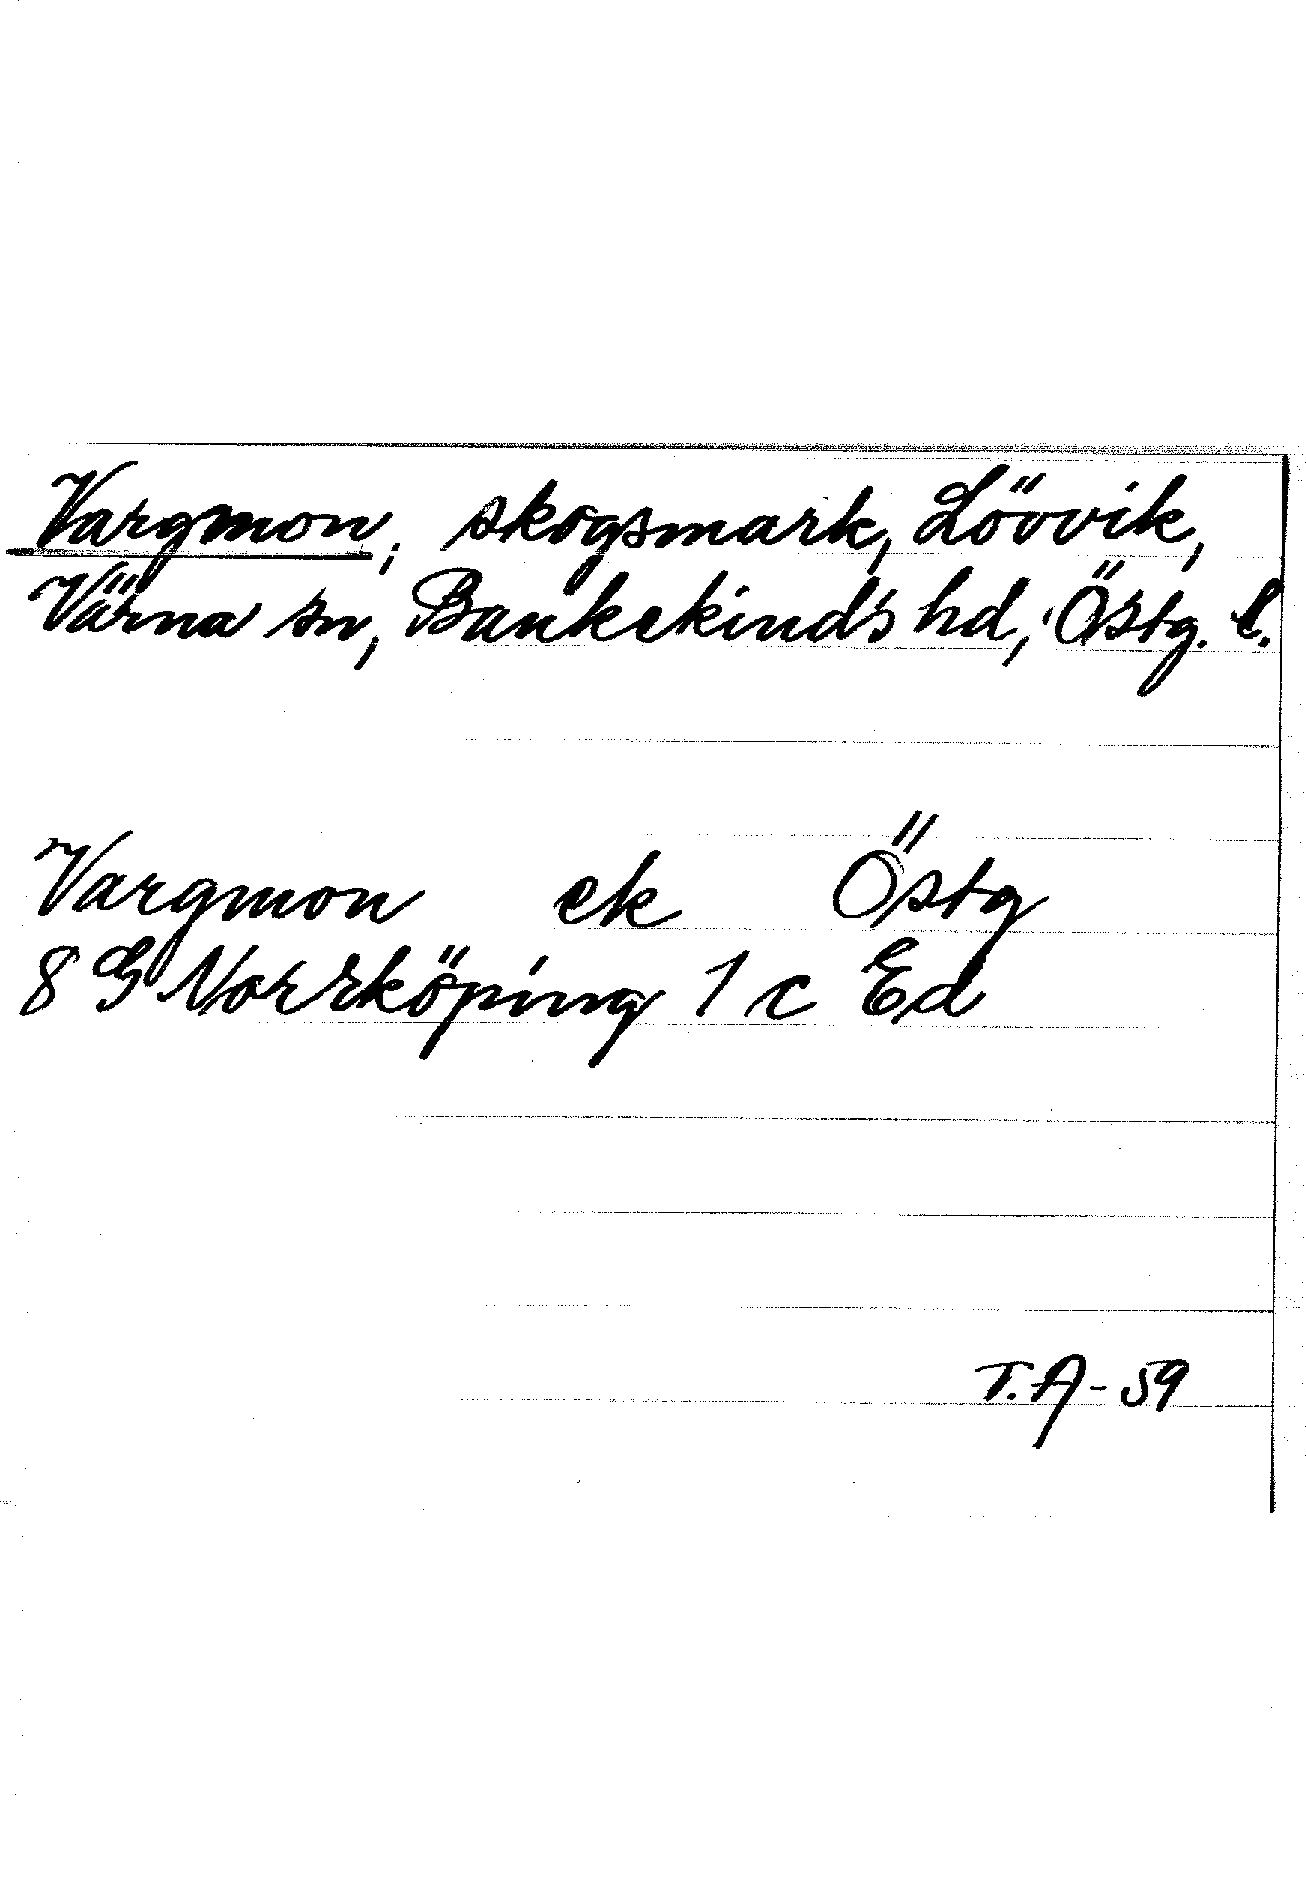 Vargmon, skogsmark, Lövvik,
Värna sn, Bankekinds hd, Östg. l.
Vargmon ek Östg
8 G Norrköping 1 c Ed
T.A-59